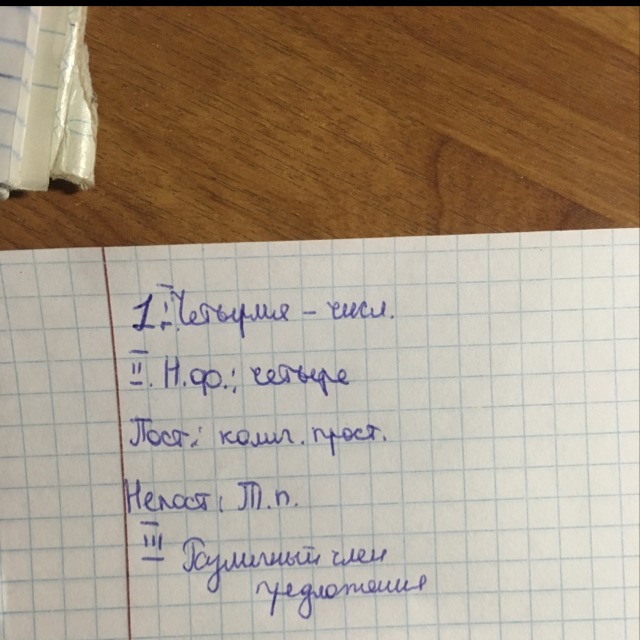 1. I. Четырмя – числ.
II. Н.ф.: четыре
Пост.: колич. прост.
Непост: Т.п.
III Различный член
предложения